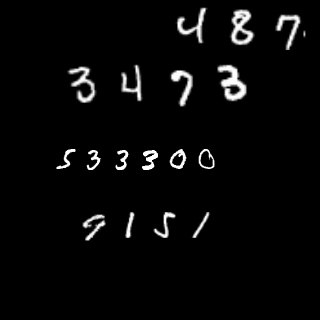 487
3493
533300
9151